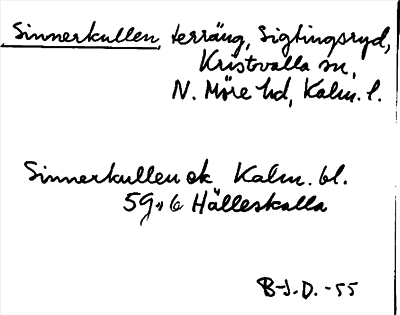 Sinnerkullen, terräng, Sigtingsryd,
Kristvalla sn,
N. Möre hd, Kalm. l.
Sinnerkullen ek Kalm. bl.
59 Hälleskalla
B-J.D. -55